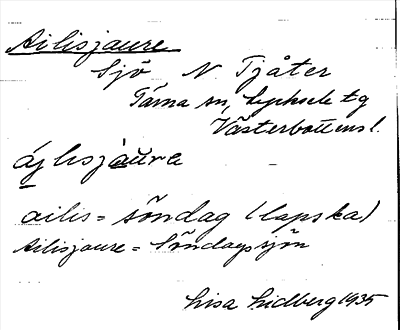 Ailisjaure
Sjö N. Tjåter
Tärna sn, Lycksele tg
Västerbottens l.
ájlisjaŭra
ailis = söndag (lapska)
Ailisjaure = Söndagssjön
Lisa Lidberg 1935